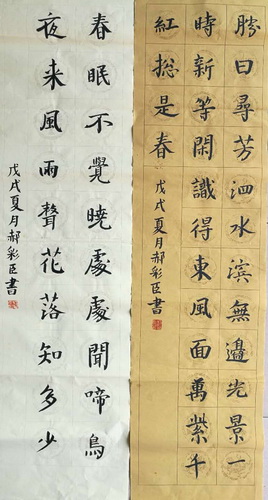 勝日尋芳泗水滨無邊光景一
時新等閑識得東風面萬紫千
紅総是春
戊戌夏月郝彩臣書
春眠不覺曉處處聞啼鳥
夜来風雨聲花落知多少
戊戌夏月郝彩臣書